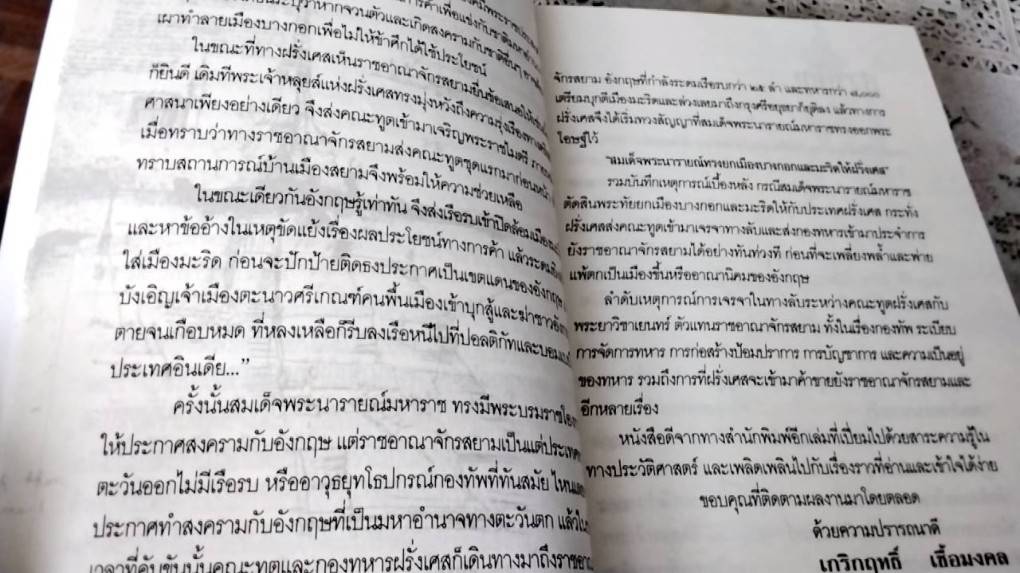 การค้าเพื่อแข่งกับชาติ
ระบุว่าหากจวนตัวและเกิดสงครามกับชาติอื่นๆ
เผาทำลายเมืองบางกอกเพื่อไม่ให้ข้าศึกได้ใช้ประโยชน์
ในขณะที่ทางฝรั่งเศสเห็นราชอาณาจักรสยามยื่นข้อเสนอให้
ก็ยินดี เดิมทีพระเจ้าหลุยส์แห่งฝรั่งเศสทรงมุ่งหวังถึงความรุ่งเรืองทาง
ศาสนาเพียงอย่างเดียว จึงส่งคณะทูตเข้ามาเจริญพระราชไมตรี
เมื่อทราบว่าทางราชอาณาจักรสยามส่งคณะทูตชุดแรกมาก่อน
ทราบสถานการณ์บ้านเมืองสยามจึงพร้อมให้ความช่วยเหลือ
ในขณะเดียวกันอังกฤษรู้เท่าทัน จึงส่งเรือรบเข้าปิดล้อมเมือง
และหาข้ออ้างในเหตุขัดแย้งเรื่องผลประโยชน์ทางการค้า แล้วระดม
ใส่เมืองมะริด ก่อนจะปักป้ายติดธงประกาศเป็นเขตแดนของอังกฤษ
บังเอิญเจ้าเมืองตะนาวศรีเกณฑ์คนพื้นเมืองเข้าบุกสู้และฆ่าชาวอัง
ตายจนเกือบหมด ที่หลงเหลือก็รีบลงเรือหนีไปที่ปอลติกัทและบอม
ประเทศอินเดีย...”
ครั้งนั้นสมเด็จพระนารายณ์มหาราช ทรงมีพระบรมราชโอ
ให้ประกาศสงครามกับอังกฤษ แต่ราชอาณาจักรสยามเป็นแต่ประเทศ
ตะวันออกไม่มีเรือรบ หรืออาวุธยุทโธปกรณ์กองทัพที่ทันสมัย ไหนเลย
ประกาศทำสงครามกับอังกฤษที่เป็นมหาอำนาจทางตะวันตก แล้วใน
เวลาที่คับขันนั้นคณะทูตและกองทหารฝรั่งเศสก็เดินทางมาถึงราชอา
จักรสยาม อังกฤษที่กำลังระดมเรือรบกว่า ๒๕ ลำ และทหารกว่า ๘,๐๐๐
เตรียมบุกตีเมืองมะริดและล่วงเลยมาถึงกรุงศรีอยุธยาก็ยุติลง แล้วทางการ
ฝรั่งเศสจึงได้เริ่มทวงสัญญาที่สมเด็จพระนารายณ์มหาราชทรงออกพระ
โอษฐ์ไว้
“สมเด็จพระนารายณ์ทรงยกเมืองบางกอกและมะริดให้ฝรั่งเศส”
รวมบันทึกเหตุการณ์เบื้องหลัง กรณีสมเด็จพระนารายณ์มหาราช
ตัดสินพระทัยยกเมืองบางกอกและมะริดให้กับประเทศฝรั่งเศส กระทั่ง
ฝรั่งเศสส่งคณะทูตเข้ามาเจรจาทางลับและส่งกองทหารเข้ามาประจำการ
ยังราชอาณาจักรสยามได้อย่างทันท่วงที ก่อนที่จะเพลี่ยงพล้ำและพ่าย
แพ้ตกเป็นเมืองขึ้นหรืออาณานิคมของอังกฤษ
ลำดับเหตุการณ์การเจรจาในทางลับระหว่างคณะทูตฝรั่งเศสกับ
พระยาวิชาเยนทร์ ตัวแทนราชอาณาจักรสยาม ทั้งในเรื่องกองทัพ ระเบียบ
การจัดการทหาร การก่อสร้างป้อมปราการ การบัญชาการ และความเป็นอยู่
ของทหาร รวมถึงการที่ฝรั่งเศสจะเข้ามาค้าขายยังราชอาณาจักรสยามและ
อีกหลายเรื่อง
หนังสือดีจากทางสำนักพิมพ์อีกเล่มที่เปี่ยมไปด้วยสาระความรู้ใน
ทางประวัติศาสตร์ และเพลิดเพลินไปกับเรื่องราวที่อ่านและเข้าใจได้ง่าย
ขอบคุณที่ติดตามผลงานมาโดยตลอด
ด้วยความปรารถนาดี
เกริกฤทธิ์ เชื้อมงคล